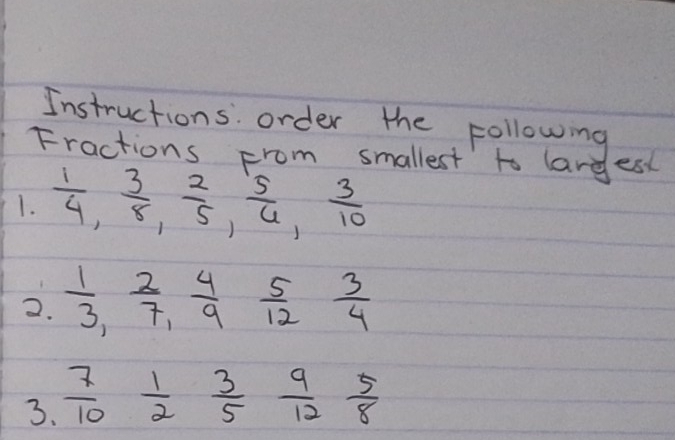 Instructions: order the Following
Fractions From smallest to largest
1. 1/4, 3/8, 2/5, 5/4, 3/10
2. 1/3, 2/7, 4/9 5/12 3/4
3. 7/10 1/2 3/5 9/12 5/8